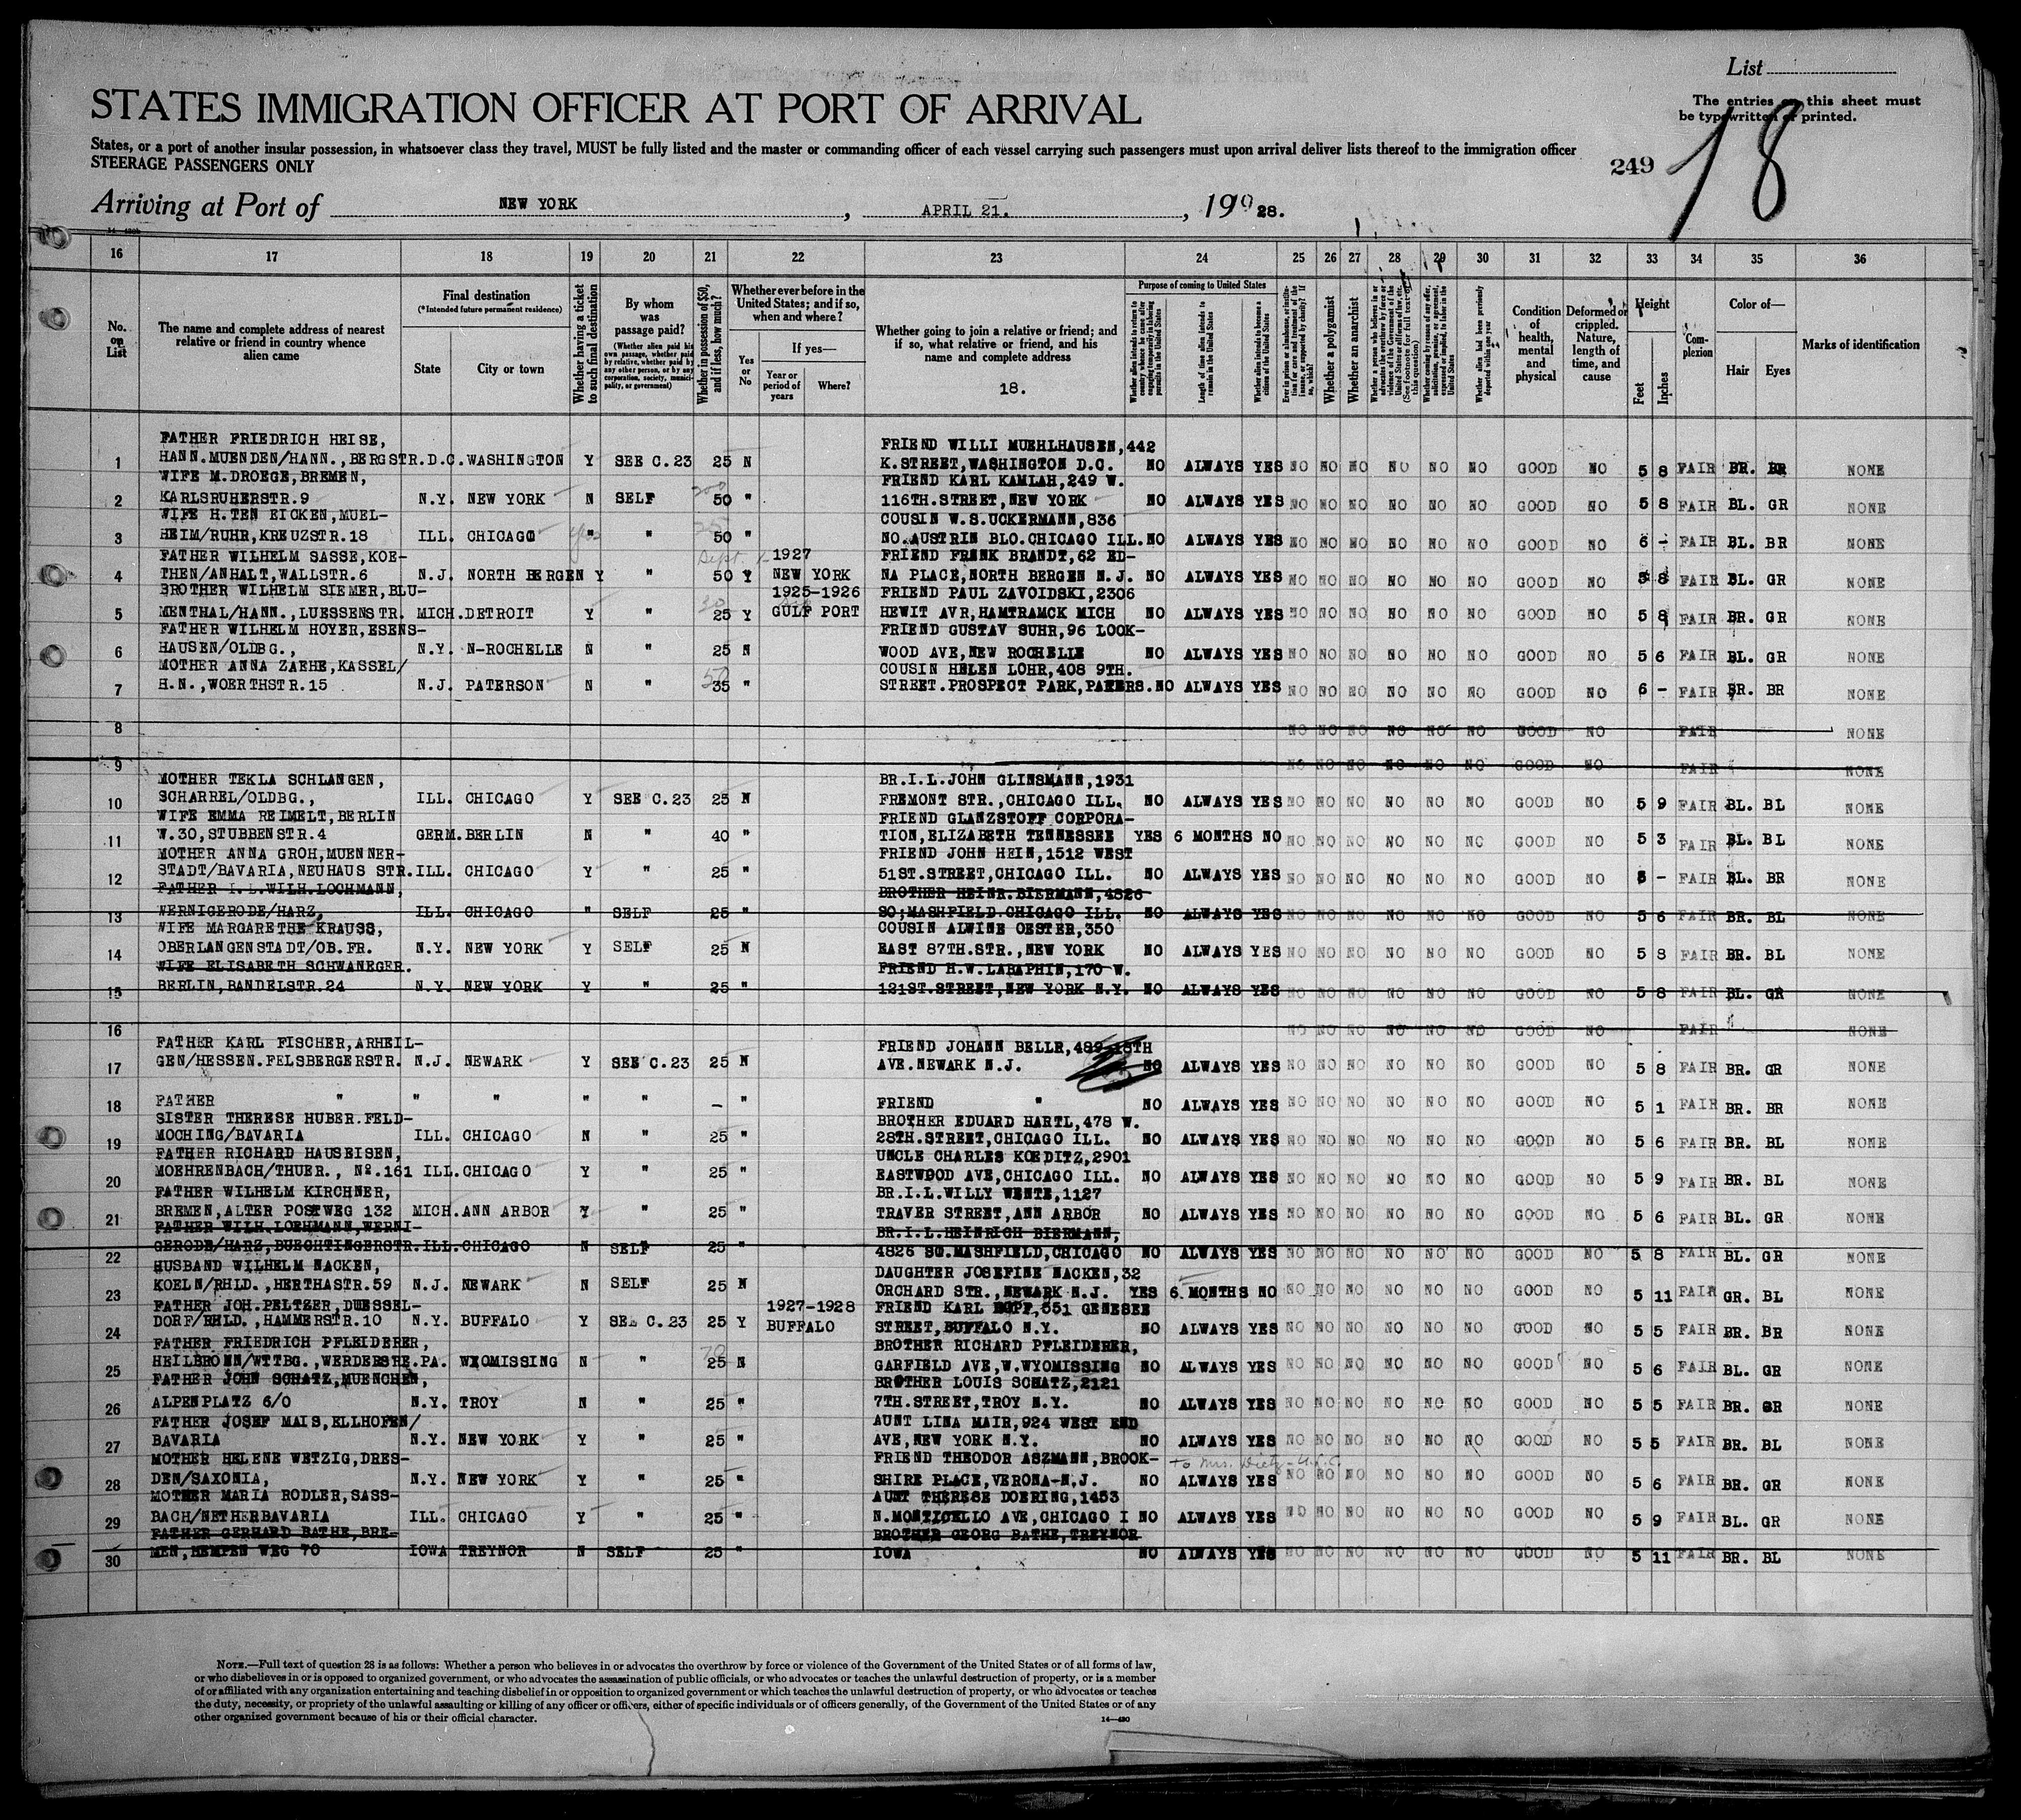 List
STATES IMMIGRATION OFFICER AT PORT OF ARRIVAL
The entries on this sheet must
be typewritten or printed.
States, or a port of another insular possession, in whatsoever class they travel, MUST be fully listed and the master or commanding officer of each vessel carrying such passengers must upon arrival deliver lists thereof to the immigration officer
STEERAGE PASSENGERS ONLY
249
18
Arriving at Port of NEW YORK, APRIL 21., 1928.
16 17 18 19 20 21 22 23 24 25 26 27 28 29 30 31 32 33 34 35 36
No. on List
The name and complete address of nearest relative or friend in country whence alien came
Final destination
(*Intended future permanent residence)
State
City or town
Whether having a ticket to such final destination
By whom was passage paid?
(Whether alien paid his own passage, whether paid by relative, whether paid by any other person, or by any corporation, society, municipality, or government)
Whether in possession of $50, and if less, how much?
Whether ever before in the United States; and if so, when and where?
Yes or No
If yes—
Year or period of years
Where?
Whether going to join a relative or friend; and if so, what relative or friend, and his name and complete address
18.
Purpose of coming to United States
Whether alien intends to return to country whence he came after engaging temporarily in laboring pursuits in the United States
Length of time alien intends to remain in the United States
Whether alien intends to become a citizen of the United States
Whether a polygamist
Whether an anarchist
Whether alien had been previously deported within one year
Condition of health, mental and physical
Deformed or crippled. Nature, length of time, and cause
Height
Feet
Inches
Complexion
Color of—
Hair
Eyes
Marks of identification
FATHER FRIEDRICH HEISE, FRIEND WILLI MUEHLHAUSEN,442
1 HANN.MUENDEN/HANN.,BERGSTR. D.C. WASHINGTON Y SEE C.23 25 N K.STREET,WASHINGTON D.C. NO ALWAYS YES NO NO NO NO NO NO GOOD NO 5 8 FAIR BR. BR NONE
WIFE M.DROEGE,BREMEN, FRIEND KARL KAMLAH,249 W.
2 KARLSRUHERSTR.9 N.Y. NEW YORK N SELF 50 " 116TH.STREET,NEW YORK NO ALWAYS YES NO NO NO NO NO NO GOOD NO 5 8 FAIR BL. GR NONE
WIFE H.TEN EICKEN,MUEL- COUSIN W.S.UCKERMANN,836
3 HEIM/RUHR,KREUZSTR.18 ILL. CHICAGO yes " " 25 50 " NO.AUSTRIN BLO.CHICAGO ILL. NO ALWAYS YES NO NO NO NO NO NO GOOD NO 6 - FAIR BL. BR NONE
FATHER WILHELM SASSE,KOE- Sept. 1927 FRIEND FRANK BRANDT,62 ED-
4 THEN/ANHALT,WALLSTR.6 N.J. NORTH BERGEN Y " 50 Y NEW YORK NA PLACE,NORTH BERGEN N.J. NO ALWAYS YES NO NO NO NO NO NO GOOD NO 5 8 FAIR BL. GR NONE
BROTHER WILHELM SIEMER,BLU- 1925-1926 FRIEND PAUL ZAVOIDSKI,2306
5 MENTHAL/HANN.,LUESSENSTR. MICH. DETROIT Y " 25 Y GULF PORT HEWIT AVR,HAMTRAMCK MICH NO ALWAYS YES NO NO NO NO NO NO GOOD NO 5 8 FAIR BR. GR NONE
FATHER WILHELM HOYER,ESENS- FRIEND GUSTAV SUHR,96 LOOK-
6 HAUSEN/OLDBG., N.Y. N-ROCHELLE N " 25 N WOOD AVE,NEW ROCHELLE NO ALWAYS YES NO NO NO NO NO NO GOOD NO 5 6 FAIR BL. GR NONE
MOTHER ANNA ZAEHE,KASSEL/ COUSIN HELEN LOHR,408 9TH.
7 H.N.,WOERTHSTR.15 N.J. PATERSON N " 50 35 " STREET.PROSPECT PARK,PATERS. NO ALWAYS YES NO NO NO NO NO NO GOOD NO 6 - FAIR BR. BR NONE
8 NO NO NO NO NO NO GOOD NO FAIR NONE
9 NO NO NO NO NO NO GOOD NO FAIR NONE
MOTHER TEKLA SCHLANGEN, BR.I.L.JOHN GLINSMANN,1931
10 SCHARREL/OLDBG., ILL. CHICAGO Y SEE C.23 25 N FREMONT STR.,CHICAGO ILL. NO ALWAYS YES NO NO NO NO NO NO GOOD NO 5 9 FAIR BL. BL NONE
WIFE EMMA REIMELT,BERLIN FRIEND GLANZSTOFF CORPORA-
11 W.30,STUBBENSTR.4 GERM. BERLIN N " 40 " TION,ELIZABETH TENNESSEE YES 6 MONTHS NO NO NO NO NO NO NO GOOD NO 5 3 FAIR BL. BL NONE
MOTHER ANNA GROH,MUENNER- FRIEND JOHN HEIN,1512 WEST
12 STADT/BAVARIA,NEUHAUS STR. ILL. CHICAGO Y " 25 " 51ST.STREET,CHICAGO ILL. NO ALWAYS YES NO NO NO NO NO NO GOOD NO 5 - FAIR BL. BR NONE
FATHER I.L.WILH.LOCHMANN, BROTHER HEINR.BIERMANN,4826
13 WERNIGERODE/HARZ, ILL. CHICAGO " SELF 25 " SO;MASHFIELD.CHICAGO ILL. NO ALWAYS YES NO NO NO NO NO NO GOOD NO 5 6 FAIR BR. BL NONE
WIFE MARGARETHE KRAUSS, COUSIN ALWINE OESTER,350
14 OBERLANGENSTADT/OB.FR. N.Y. NEW YORK Y SELF 25 N EAST 87TH.STR.,NEW YORK NO ALWAYS YES NO NO NO NO NO NO GOOD NO 5 8 FAIR BR. BL NONE
WIFE ELISABETH SCHWANEGER. FRIEND H.W.LABAPHIN,170 W.
15 BERLIN,BANDELSTR.24 N.Y. NEW YORK Y " 25 " 121ST.STREET,NEW YORK N.Y. NO ALWAYS YES NO NO NO NO NO NO GOOD NO 5 8 FAIR BL. GR NONE
16 NO NO NO NO NO NO GOOD NO FAIR NONE
FATHER KARL FISCHER,ARHEIL- FRIEND JOHANN BELLR,489 18TH
17 GEN/HESSEN.FELSBERGERSTR. N.J. NEWARK Y SEE C.23 25 N AVE.NEWARK N.J. NO ALWAYS YES NO NO NO NO NO NO GOOD NO 5 8 FAIR BR. GR NONE
18 FATHER " " " " " - " FRIEND " NO ALWAYS YES NO NO NO NO NO NO GOOD NO 5 1 FAIR BR. BR NONE
SISTER THERESE HUBER.FELD- BROTHER EDUARD HARTL,478 W.
19 MOCHING/BAVARIA ILL. CHICAGO N " 25 " 28TH.STREET,CHICAGO ILL. NO ALWAYS YES NO NO NO NO NO NO GOOD NO 5 6 FAIR BR. BL NONE
FATHER RICHARD HAUSEISEN, UNCLE CHARLES KOEDITZ,2901
20 MOEHRENBACH/THUER., No.161 ILL. CHICAGO Y " 25 " EASTWOOD AVE,CHICAGO ILL. NO ALWAYS YES NO NO NO NO NO NO GOOD NO 5 9 FAIR BR. BL NONE
FATHER WILHELM KIRCHNER, BR.I.L.WILLY WENTE,1127
21 BREMEN,ALTER POSTWEG 132 MICH. ANN ARBOR Y " 25 " TRAVER STREET,ANN ARBOR NO ALWAYS YES NO NO NO NO NO NO GOOD NO 5 6 FAIR BL. GR NONE
FATHER WILH.LOEHMANN,WERNI- BR.I.L.HEINRICH BIERMANN,
22 GERODE/HARZ,BUECHTINGERSTR. ILL. CHICAGO N SELF 25 " 4826 SO.MASHFIELD,CHICAGO NO ALWAYS YES NO NO NO NO NO NO GOOD NO 5 8 FAIR BL. GR NONE
HUSBAND WILHELM NACKEN, DAUGHTER JOSEFINE NACKEN,32
23 KOELN/RHLD.,HERTHASTR.59 N.J. NEWARK N SELF 25 N ORCHARD STR.,NEWARK N.J. YES 6 MONTHS NO NO NO NO NO NO NO GOOD NO 5 11 FAIR GR. BL NONE
FATHER JOH.PELTZER,DUESSEL- 1927-1928 FRIEND KARL HOPP,551 GENESEE
24 DORF/RHLD.,HAMMERSTR.10 N.Y. BUFFALO Y SEE C.23 25 Y BUFFALO STREET,BUFFALO N.Y. NO ALWAYS YES NO NO NO NO NO NO GOOD NO 5 5 FAIR BR. BR NONE
FATHER FRIEDRICH PFLEIDERER, BROTHER RICHARD PFLEIDERER,
25 HEILBRONN/WTTBG.,WERDERSTR. PA. WYOMISSING N " 25 N GARFIELD AVE,W.WYOMISSING NO ALWAYS YES NO NO NO NO NO NO GOOD NO 5 6 FAIR BL. GR NONE
FATHER JOHN SCHATZ,MUENCHEN, BROTHER LOUIS SCHATZ,2121
26 ALPENPLATZ 6/0 N.Y. TROY N " 25 " 7TH.STREET,TROY N.Y. NO ALWAYS YES NO NO NO NO NO NO GOOD NO 5 5 FAIR BR. GR NONE
FATHER JOSEF MAIS,ELLHOFEN/ AUNT LINA MAIR,924 WEST END
27 BAVARIA N.Y. NEW YORK Y " 25 " AVE,NEW YORK N.Y. NO ALWAYS YES NO NO NO NO NO NO GOOD NO 5 5 FAIR BR. BL NONE
MOTHER HELENE WETZIG,DRES- FRIEND THEODOR ASZMANN,BROOK- to Mrs. Dietz
28 DEN/SAXONIA, N.Y. NEW YORK Y " 25 " SHIRE PLACE,VERONA-N.J. NO ALWAYS YES NO NO NO NO NO NO GOOD NO 5 6 FAIR BR. GR NONE
MOTHER MARIA RODLER,SASS- AUNT THERESE DOERING,1453
29 BACH/NETHERBAVARIA ILL. CHICAGO Y " 25 " N.MONTICELLO AVE,CHICAGO I NO ALWAYS YES NO NO NO NO NO NO GOOD NO 5 9 FAIR BL. GR NONE
FATHER GERHARD BATHE,BRE- BROTHER GEORG BATHE,TREYNOR
30 MEN,HEMPEN WEG 70 IOWA TREYNOR N SELF 25 " IOWA NO ALWAYS YES NO NO NO NO NO NO GOOD NO 5 11 FAIR BR. BL NONE
NOTE.—Full text of question 28 is as follows: Whether a person who believes in or advocates the overthrow by force or violence of the Government of the United States or of all forms of law,
or who disbelieves in or is opposed to organized government, or who advocates the assassination of public officials, or who advocates or teaches the unlawful destruction of property, or is a member
of or affiliated with any organization entertaining and teaching disbelief in or opposition to organized government or which teaches the unlawful destruction of property, or who advocates or teaches
the duty, necessity, or propriety of the unlawful assaulting or killing of any officer or officers, either of specific individuals or of officers generally, of the Government of the United States or of any
other organized government because of his or their official character.
14—430